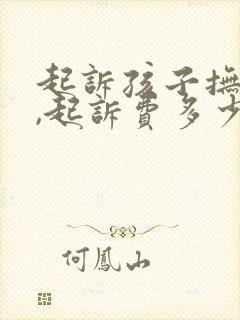 起訴孩子撫
,起訴費多少
何鳳山